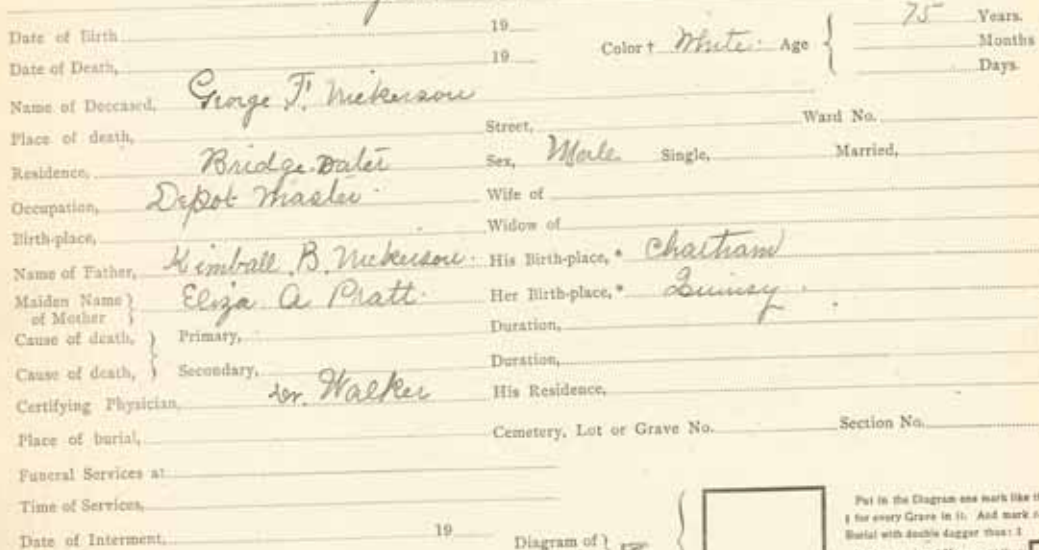 75 Years.
Date of Birth 19 Color † White. Age Months
Date of Death, 19 Days.
Name of Deceased, George F. Nickerson
Place of death, Street, Ward No.
Residence, Bridge Water Sex, Male Single, Married,
Occupation, Depot Master. Wife of
Birth-place, Widow of
Name of Father, Kimball B. Nickerson. His Birth-place, * Chatham
Maiden Name of Mother Eliza A Pratt. Her Birth-place, * Quinsy.
Cause of death, Primary, Duration,
Cause of death, Secondary, Duration,
Certifying Physician, Dr. Walker His Residence,
Place of burial, Cemetery, Lot or Grave No. Section No.
Funeral Services at
Time of Services,
Date of Interment, 19 Diagram of
Put in the Diagram one mark like
for every Grave in it. And mark
Burial with double dagger thus: ‡